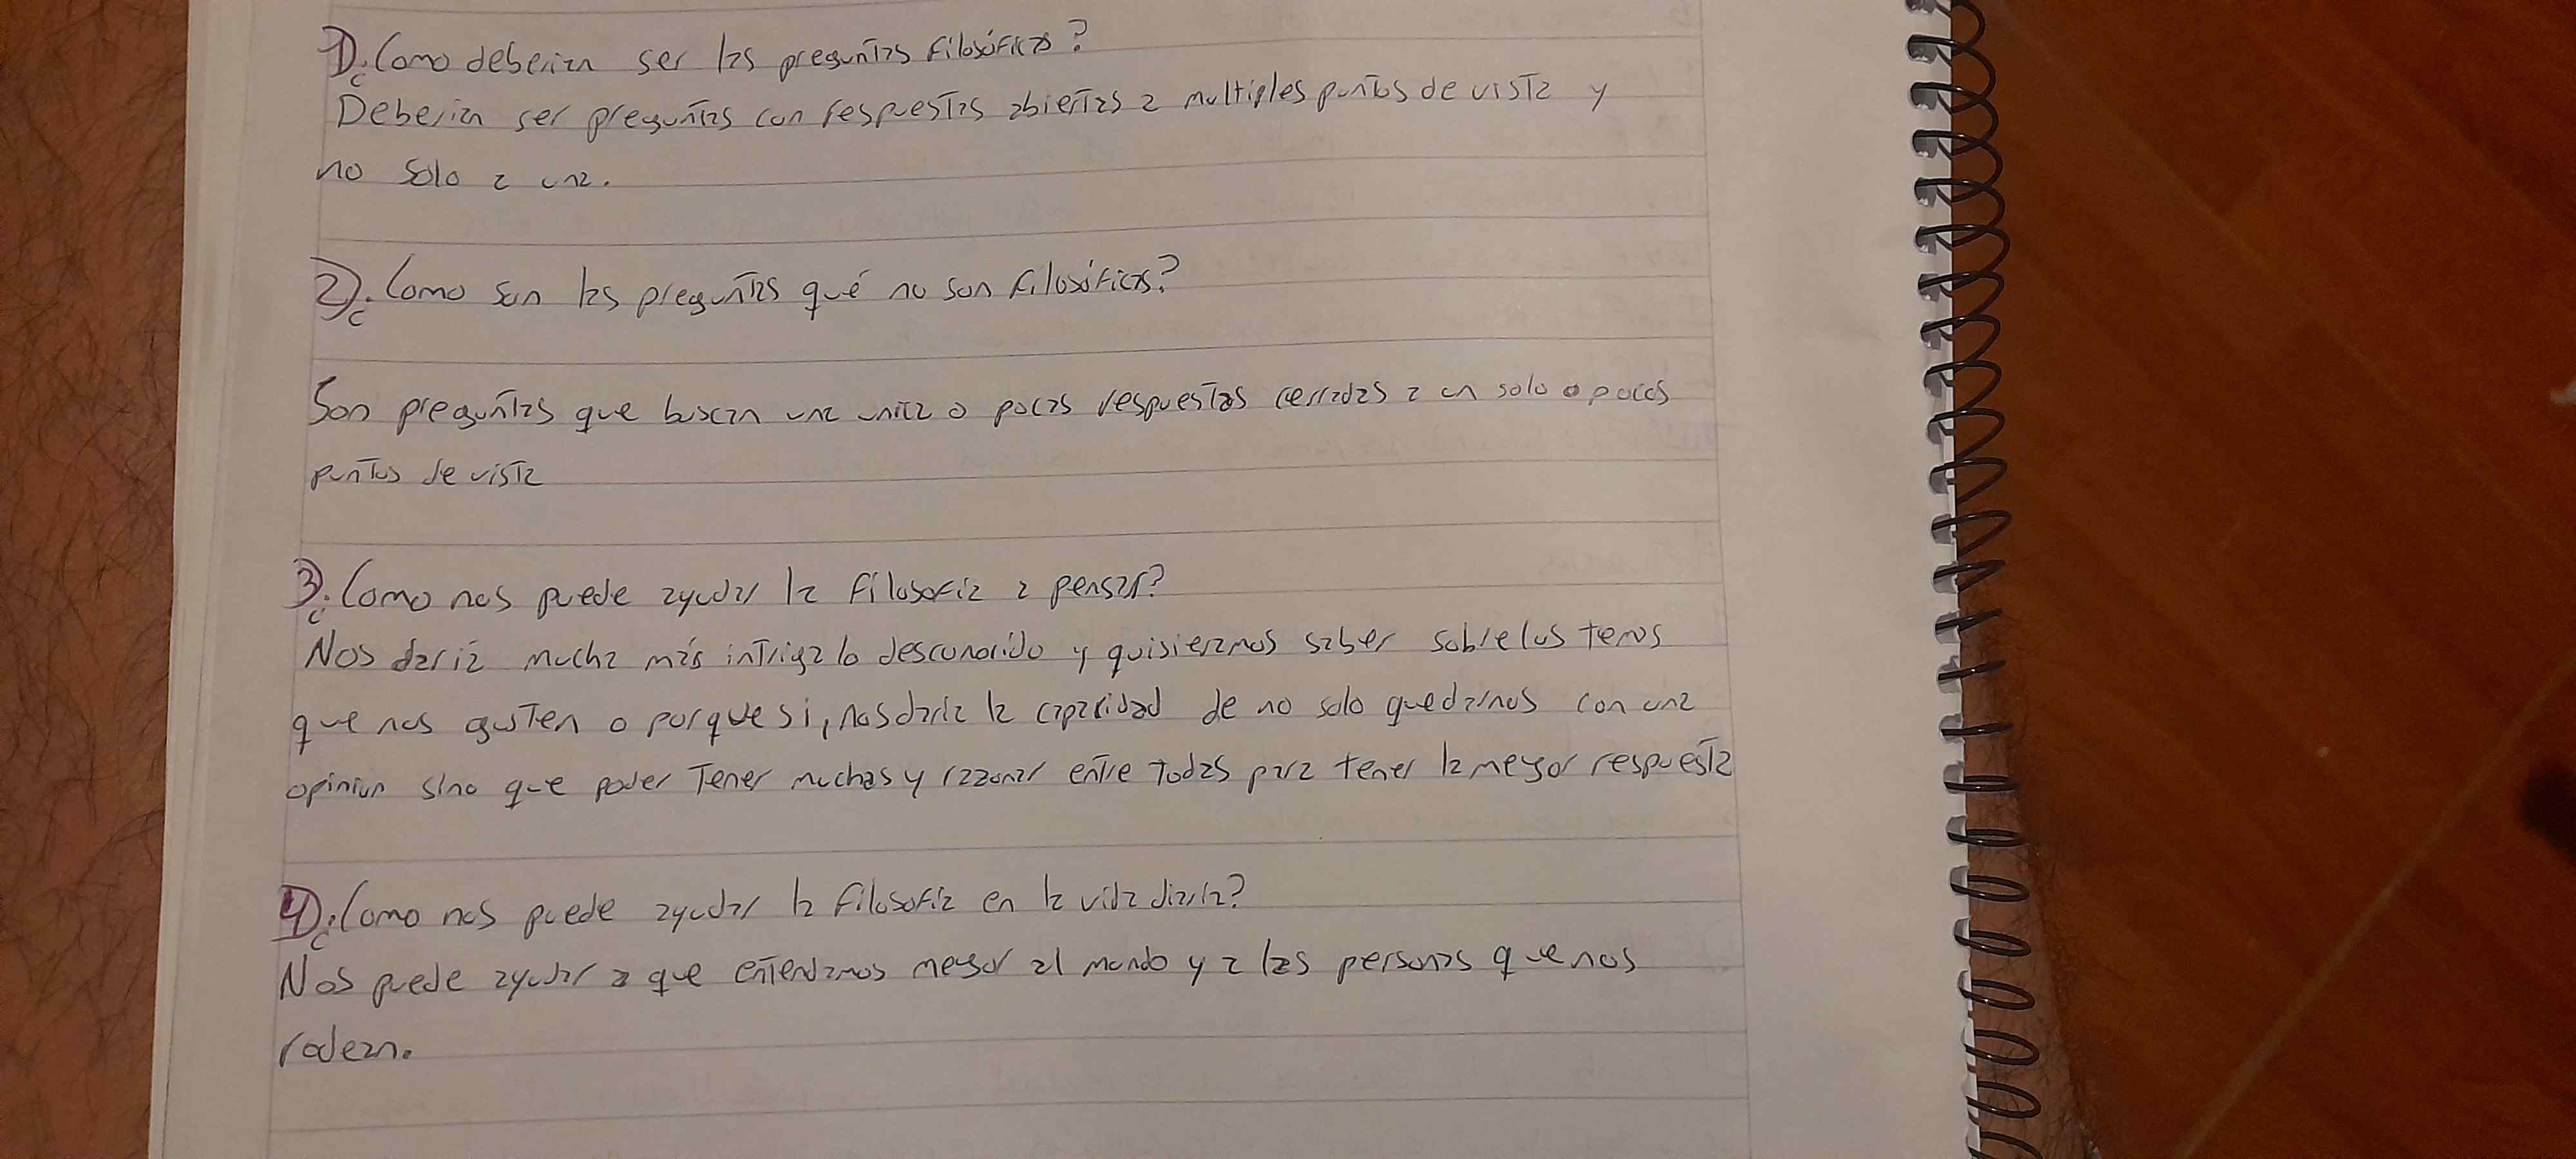 1) ¿Como deberian ser las preguntas filosóficas?
Deberian ser preguntas con respuestas abiertas a multiples puntos de vista y
no solo a una.
2) ¿Como son las preguntas qué no son filosóficas?
Son preguntas que buscan una unica o pocas respuestas cerradas a un solo o pocos
puntos de vista
3) ¿Como nos puede ayudar la filosofia a pensar?
Nos daria mucha más intriga lo desconocido y quisieramos saber sobre los temas
que nos gusten o porque si, nos daria la capacidad de no solo quedarnos con una
opinion sino que poder tener muchas y razonar entre todas para tener la meyor respuesta
4) ¿Como nos puede ayudar la filosofia en la vida diaria?
Nos puede ayudar a que entendamos meyor al mundo y a las personas que nos
rodean.